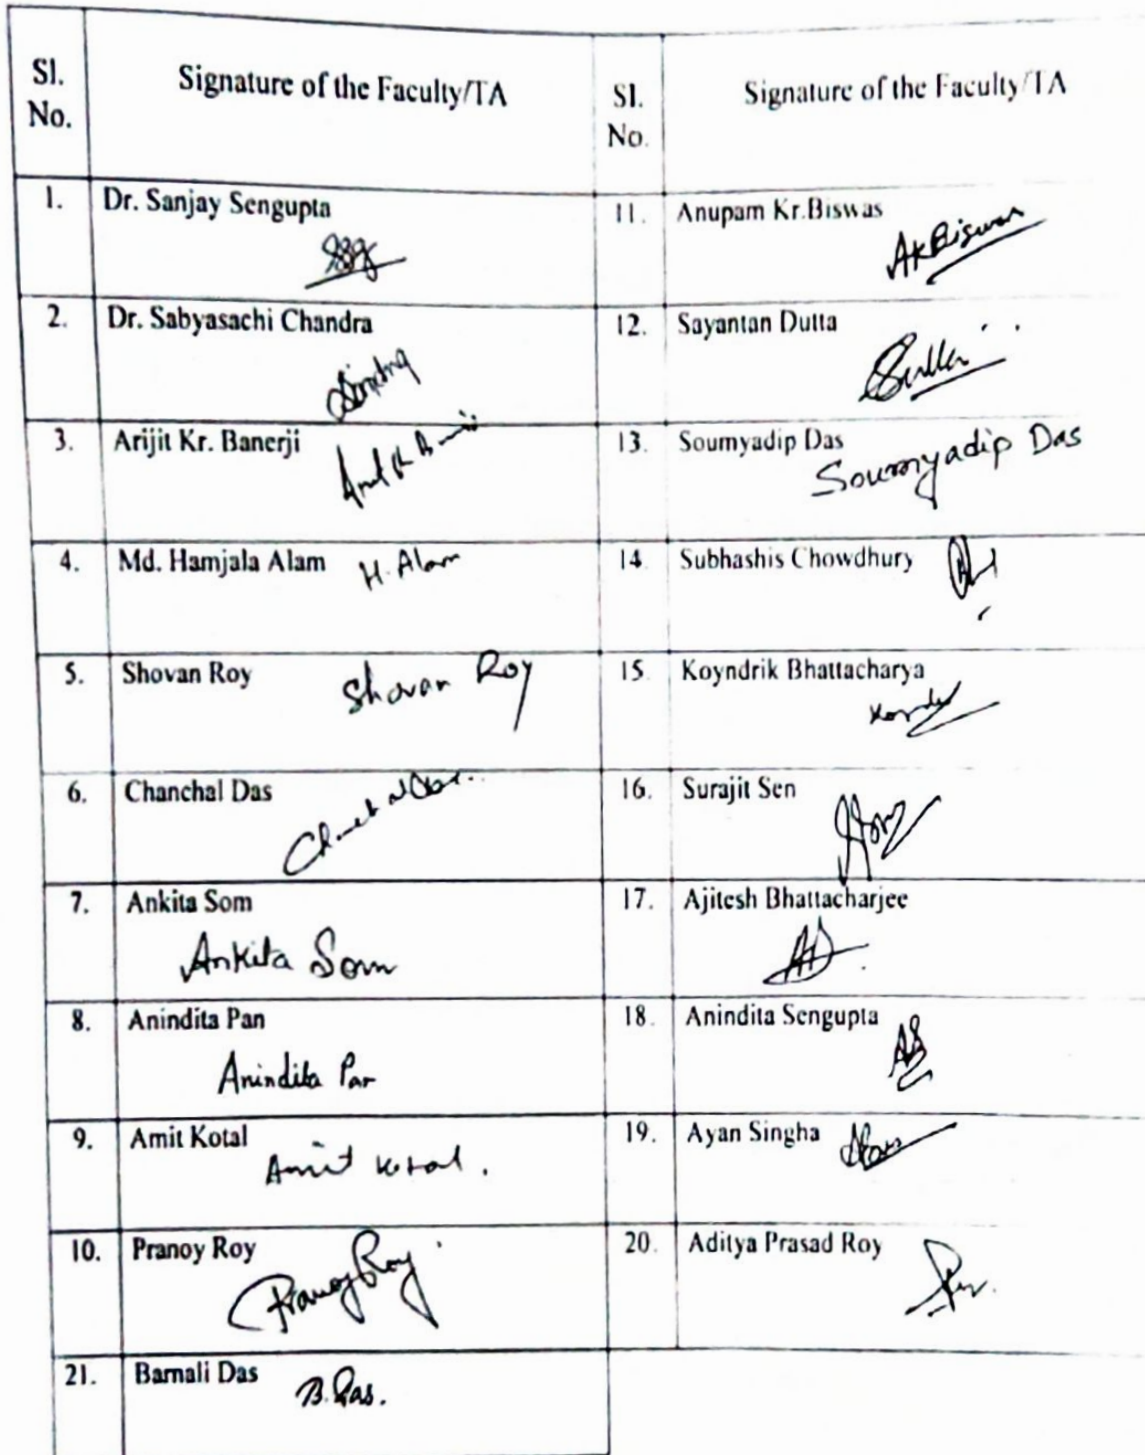 Sl. No.
Signature of the Faculty/TA
Sl. No.
Signature of the Faculty/TA
1.
Dr. Sanjay Sengupta
11.
Anupam Kr.Biswas
AKBiswas
2.
Dr. Sabyasachi Chandra
12.
Sayantan Dutta
3.
Arijit Kr. Banerji
13.
Soumyadip Das
Soumyadip Das
4.
Md. Hamjala Alam
H. Alam
14.
Subhashis Chowdhury
5.
Shovan Roy
Shovan Roy
15.
Koyndrik Bhattacharya
6.
Chanchal Das
16.
Surajit Sen
7.
Ankita Som
Ankita Som
17.
Ajitesh Bhattacharjee
8.
Anindita Pan
Anindita Pan
18.
Anindita Sengupta
9.
Amit Kotal
Amit Kotal.
19.
Ayan Singha
10.
Pranoy Roy
Pranoy Roy
20.
Aditya Prasad Roy
21.
Barnali Das
B. Das.